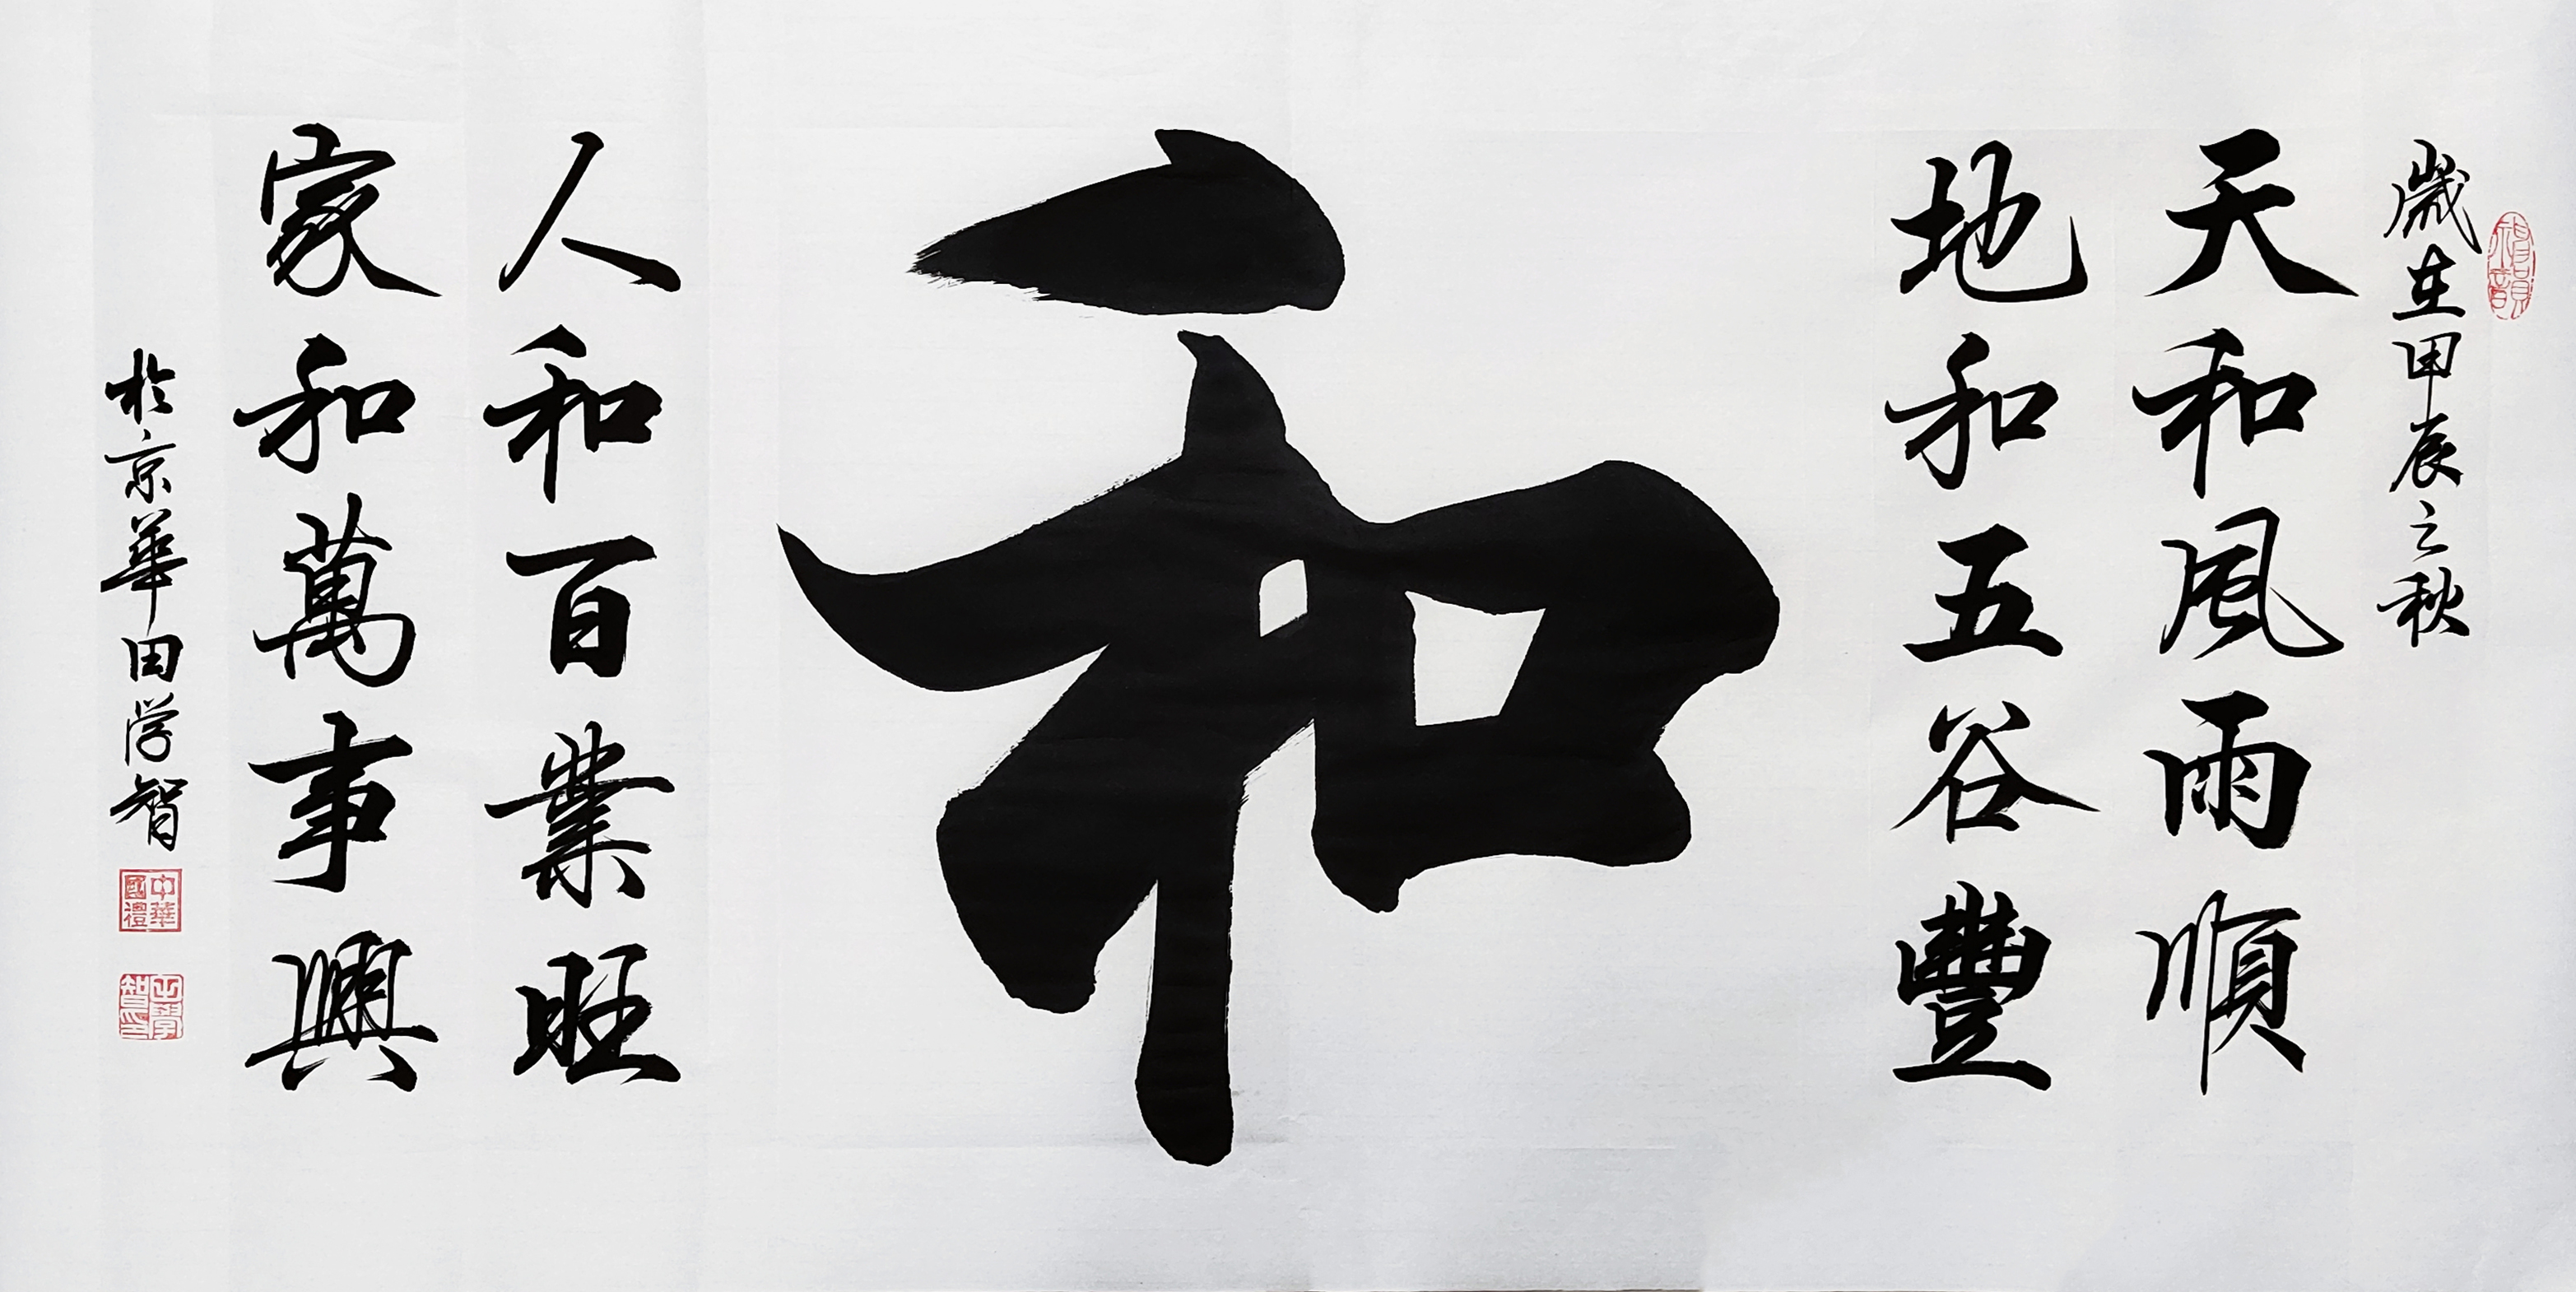 歲在甲辰之秋
天和風雨順
地和五谷豐
和
人和百業旺
家和萬事興
於京華田学智
中華國禮